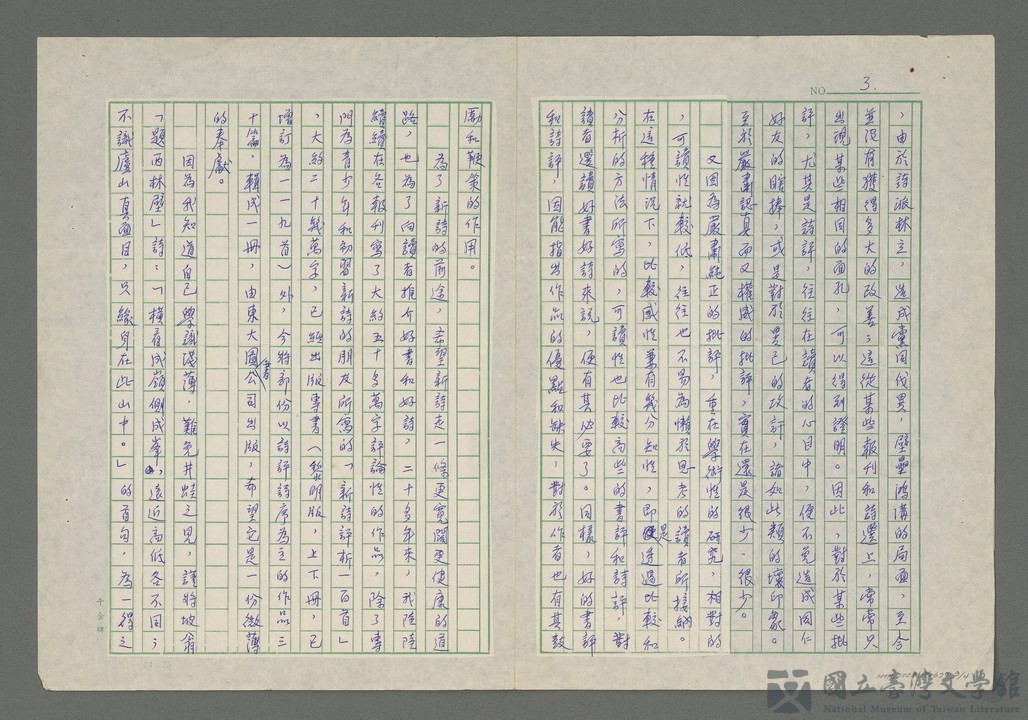 NO 3.
，由於詩派林立，造成黨同伐異，壁壘鴻溝的局面，至今
並沒有獲得多大的改善；這從某些報刊和詩選上，常常只
出現某些相同的面孔，可以得到證明。因此，對於某些批
評，尤其是詩評，往往在讀者的心目中，便不免造成同仁
好友的瞎捧，或是對於異己的攻訐諸如此類的壞印象。
至於嚴肅認真而又權威的批評，實在還是很少、很少。
又因為嚴肅純正的批評，重在學術性的研究，相對的
，可讀性就較低，往往也不易為懶於思考的讀者所接納。
在這種情況下，比較感性兼有幾分知性，即是透過比較和
分析的方法所寫的，可讀性也比較高些的書評和詩評，對
讀者選讀好書好詩來說，便有其必要了。同樣，好的書評
和詩評，因能指出作品的優點和缺失，對於作者也有其鼓
勵和鞭策的作用。
為了新詩的前途，希望新詩走一條更寬闊更健康的道
路，也為了向讀者推介好書和好詩，二十多年來，我陸陸
續續在各報刊寫了大約五十多萬字評論性的作品，除了專
門為青少年和初習新詩的朋友所寫的「新詩評析一百首」
，大約二十幾萬字，已經出版專書（黎明版，上下冊，已
增訂為一一九首）外，今將部份以詩評詩序為主的作品三
十篇，輯成一冊，由東大圖書公司出版，希望它是一份微薄
的奉獻。
因為我知道自己學識淺薄，難免井蛙之見，謹將坡翁
「題西林壁」詩：「橫看成嶺側成峯，遠近高低各不同；
不識廬山真面目，只緣身在此山中。」的首句，為一得之
國立臺灣文學館
National Museum of Taiwan Literature